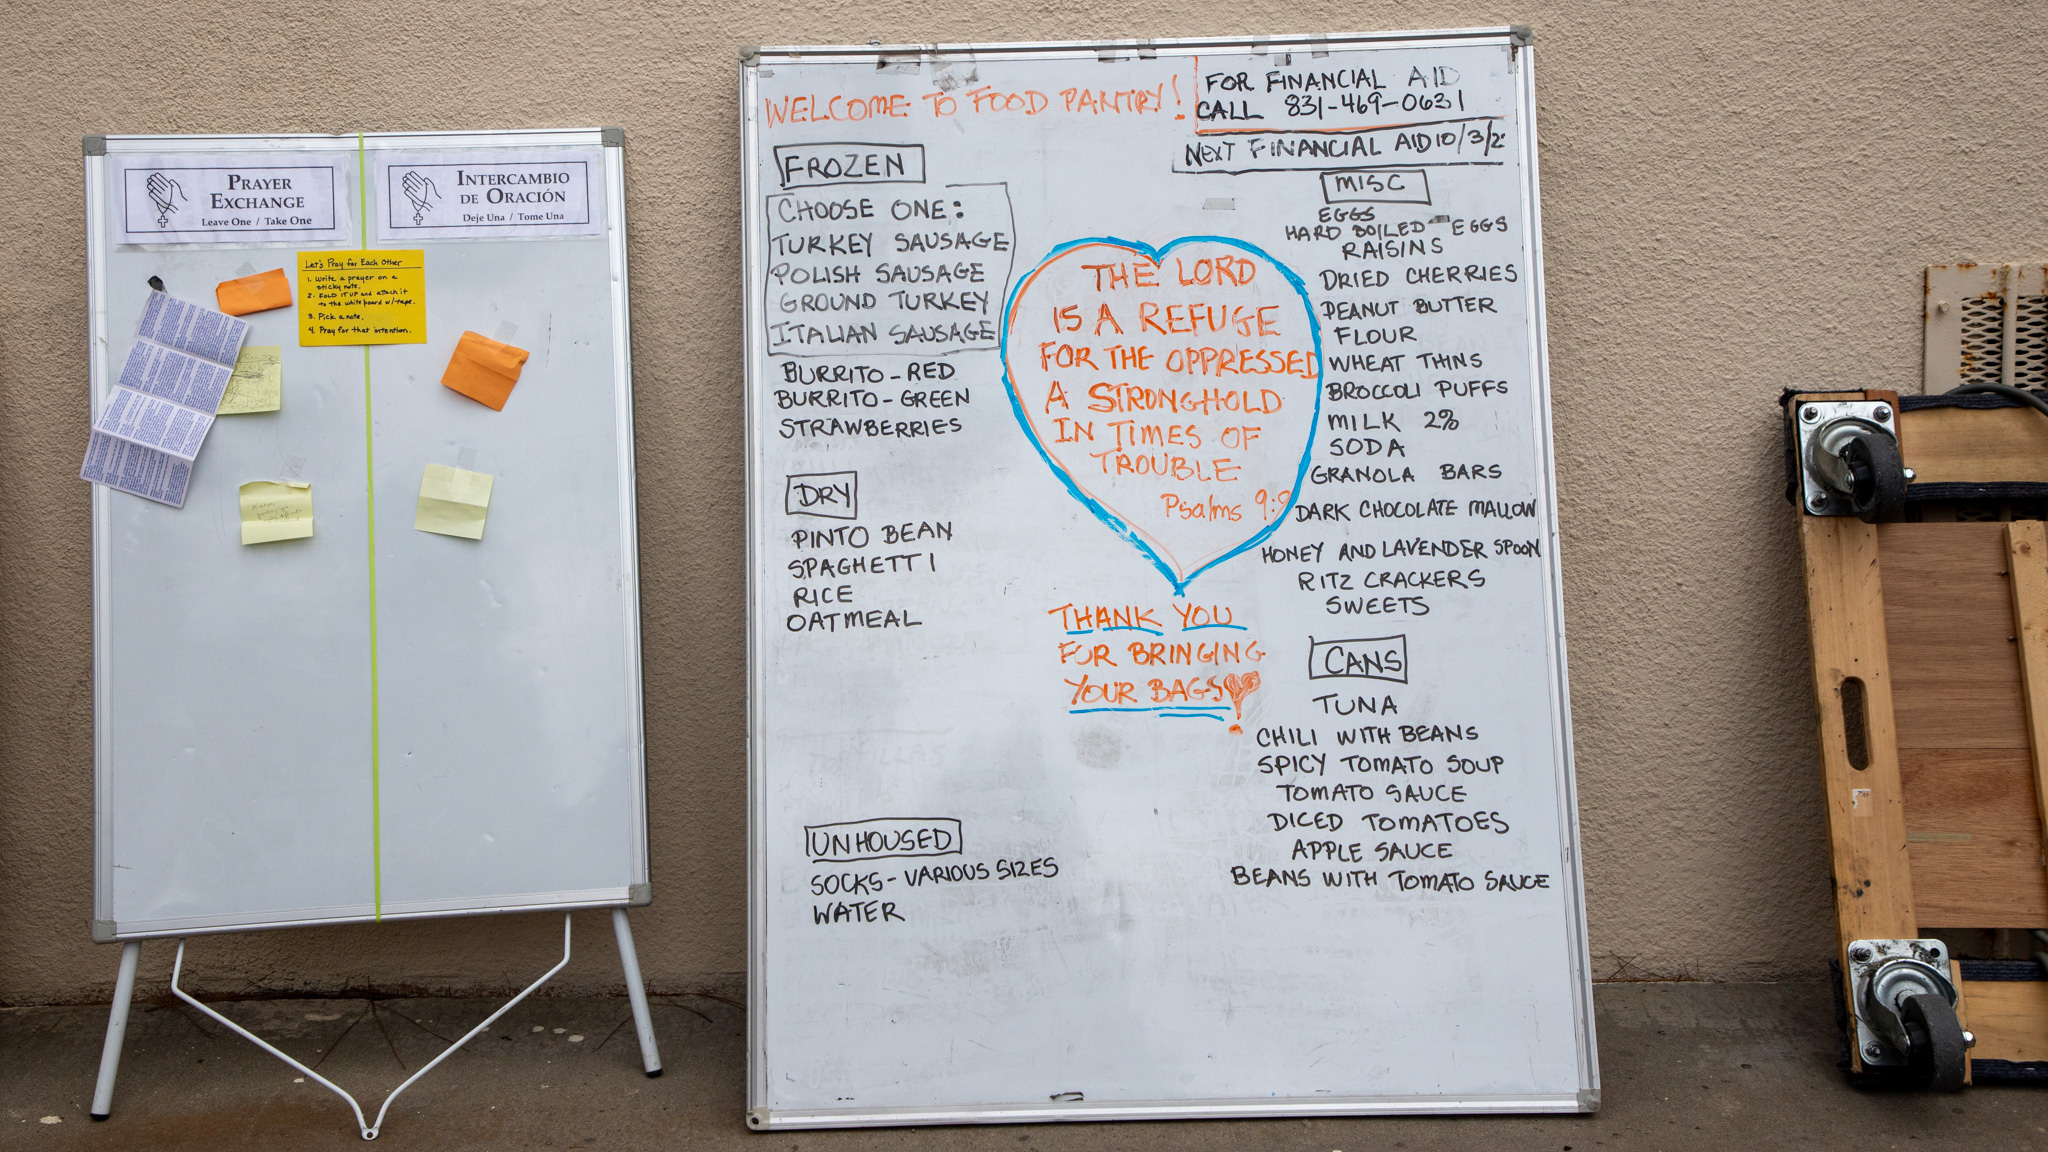 PRAYER
EXCHANGE
Leave One / Take One
INTERCAMBIO
DE ORACIÓN
Deje Una / Tome Una
Let's Pray for Each Other
1. Write a prayer on a
sticky note.
2. FOLD IT UP and attach it
to the whiteboard w/tape.
3. Pick a note.
4. Pray for that intention.
WELCOME TO FOOD PANTRY!
FOR FINANCIAL AID
CALL 831-469-0631
NEXT FINANCIAL AID 10/3/2
FROZEN
CHOOSE ONE:
TURKEY SAUSAGE
POLISH SAUSAGE
GROUND TURKEY
ITALIAN SAUSAGE
BURRITO-RED
BURRITO-GREEN
STRAWBERRIES
DRY
PINTO BEAN
SPAGHETTI
RICE
OATMEAL
UNHOUSED
SOCKS-VARIOUS SIZES
WATER
THE LORD
IS A REFUGE
FOR THE OPPRESSED
A STRONGHOLD
IN TIMES OF
TROUBLE
Psalms 9:9
THANK YOU
FOR BRINGING
YOUR BAGS
MISC
EGGS
HARD BOILED EGGS
RAISINS
DRIED CHERRIES
PEANUT BUTTER
FLOUR
WHEAT THINS
BROCCOLI PUFFS
MILK 2%
SODA
GRANOLA BARS
DARK CHOCOLATE MALLOW
HONEY AND LAVENDER SPOON
RITZ CRACKERS
SWEETS
CANS
TUNA
CHILI WITH BEANS
SPICY TOMATO SOUP
TOMATO SAUCE
DICED TOMATOES
APPLE SAUCE
BEANS WITH TOMATO SAUCE